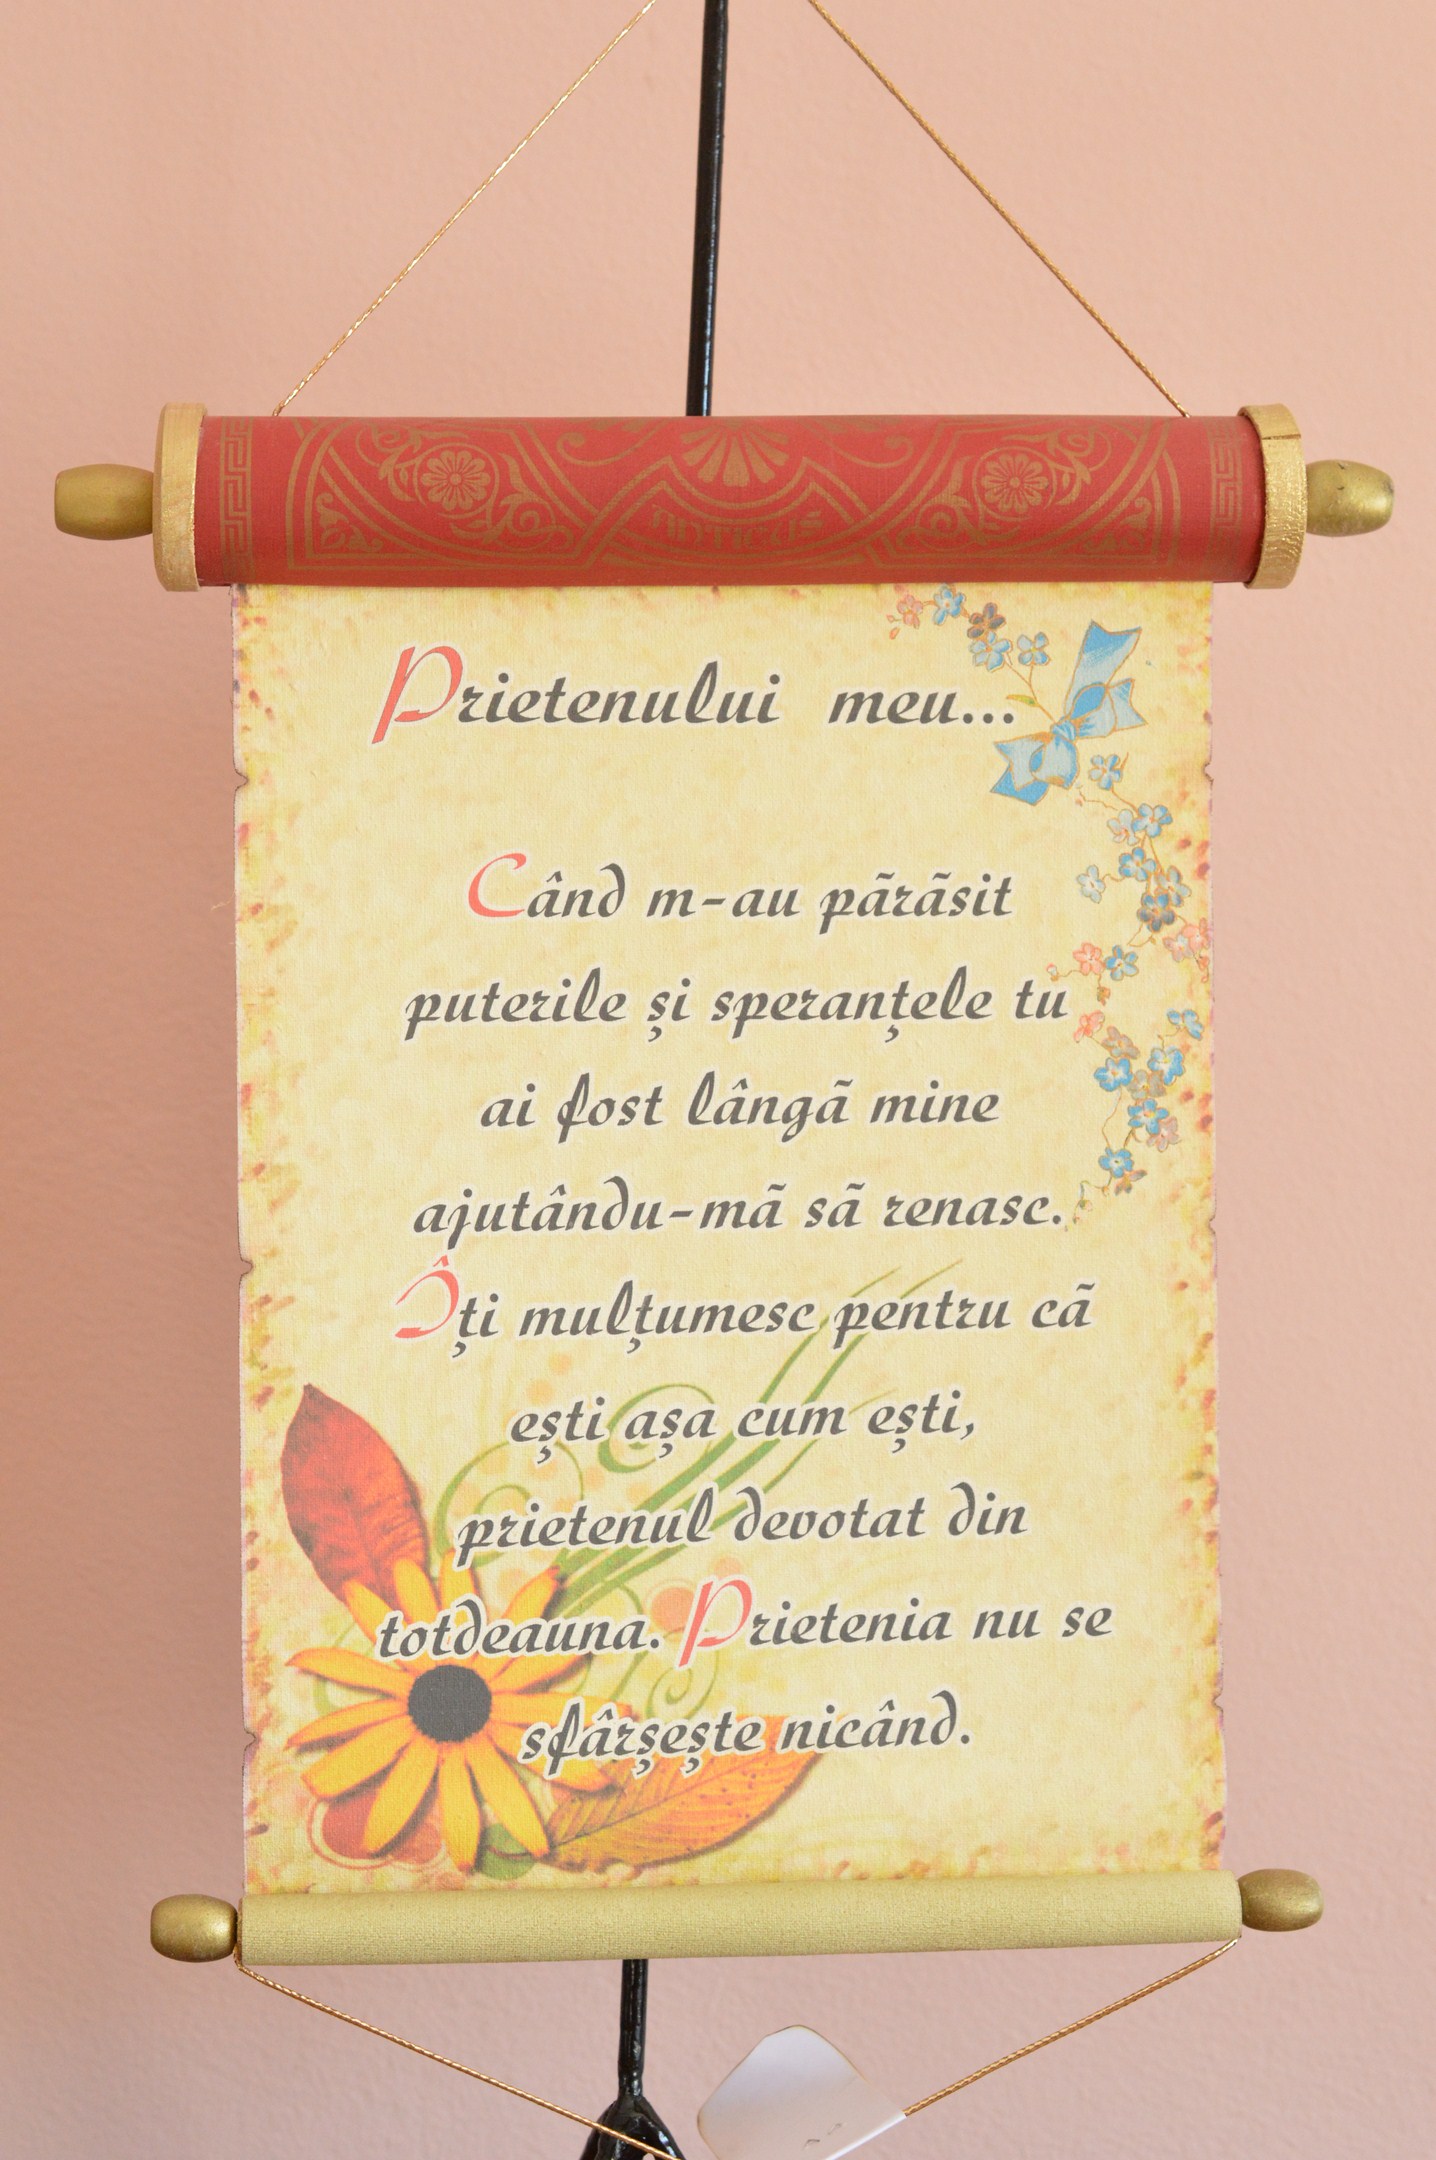 ANTICUS
Prietenului meu...
Când m-au pãrãsit
puterile și speranțele tu
ai fost lângã mine
ajutându-mã sã renasc.
Îți mulțumesc pentru cã
ești așa cum ești,
prietenul devotat din
totdeauna. Prietenia nu se
sfârșește nicând.